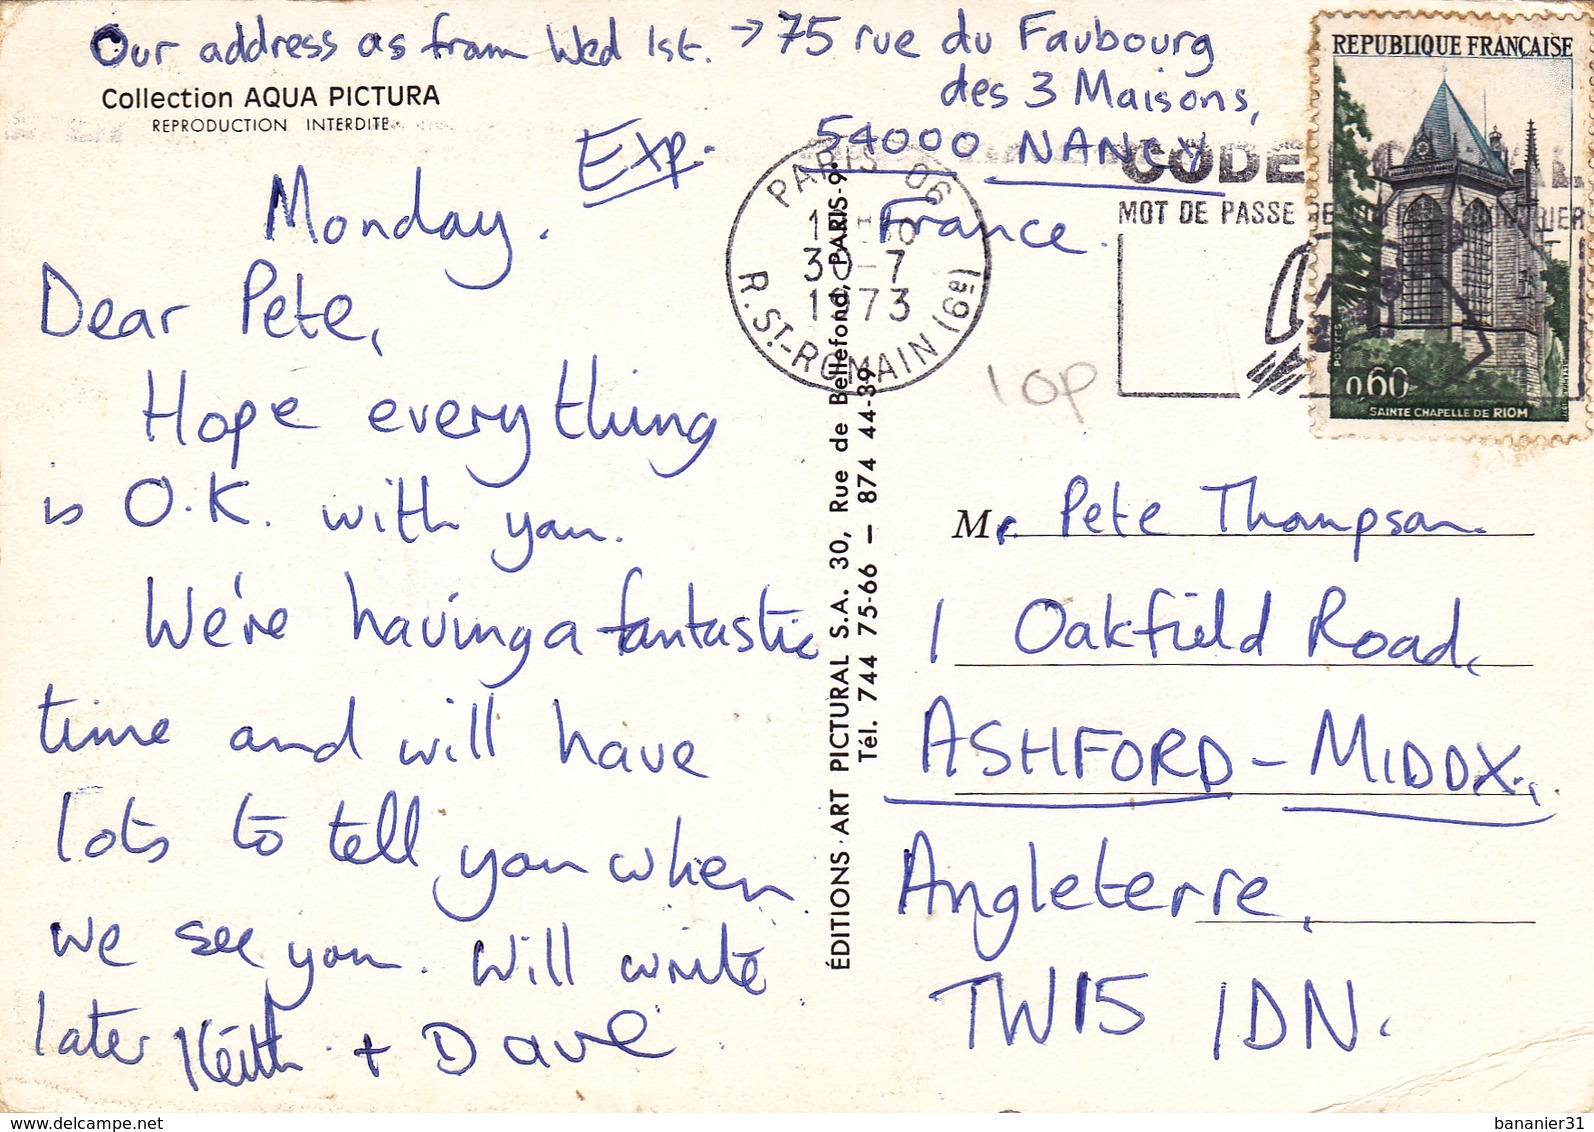 Our address as from Wed 1st. → 75 rue du Faubourg
des 3 Maisons,
54000 NANCY
France.
Collection AQUA PICTURA
REPRODUCTION INTERDITE
Exp.
Monday.
Dear Pete,
Hope everything
is O.K. with you.
We're having a fantastic
time and will have
lots to tell you when
we see you. Will write
later Keith + Dave
ÉDITIONS ART PICTURAL S.A. 30, Rue de Bellefond, PARIS-9e
Tél. 744 75-66 — 874 44-39
PARIS 06
30-7
1973
R. ST-ROMAIN (6e)
CODE
MOT DE PASSE
REPUBLIQUE FRANÇAISE
POSTES
0,60
SAINTE CHAPELLE DE RIOM
10p
Mr. Pete Thompson.
1 Oakfield Road,
ASHFORD - MIDDX.,
Angleterre,
TW15 1DN.
www.delcampe.net
bananier31